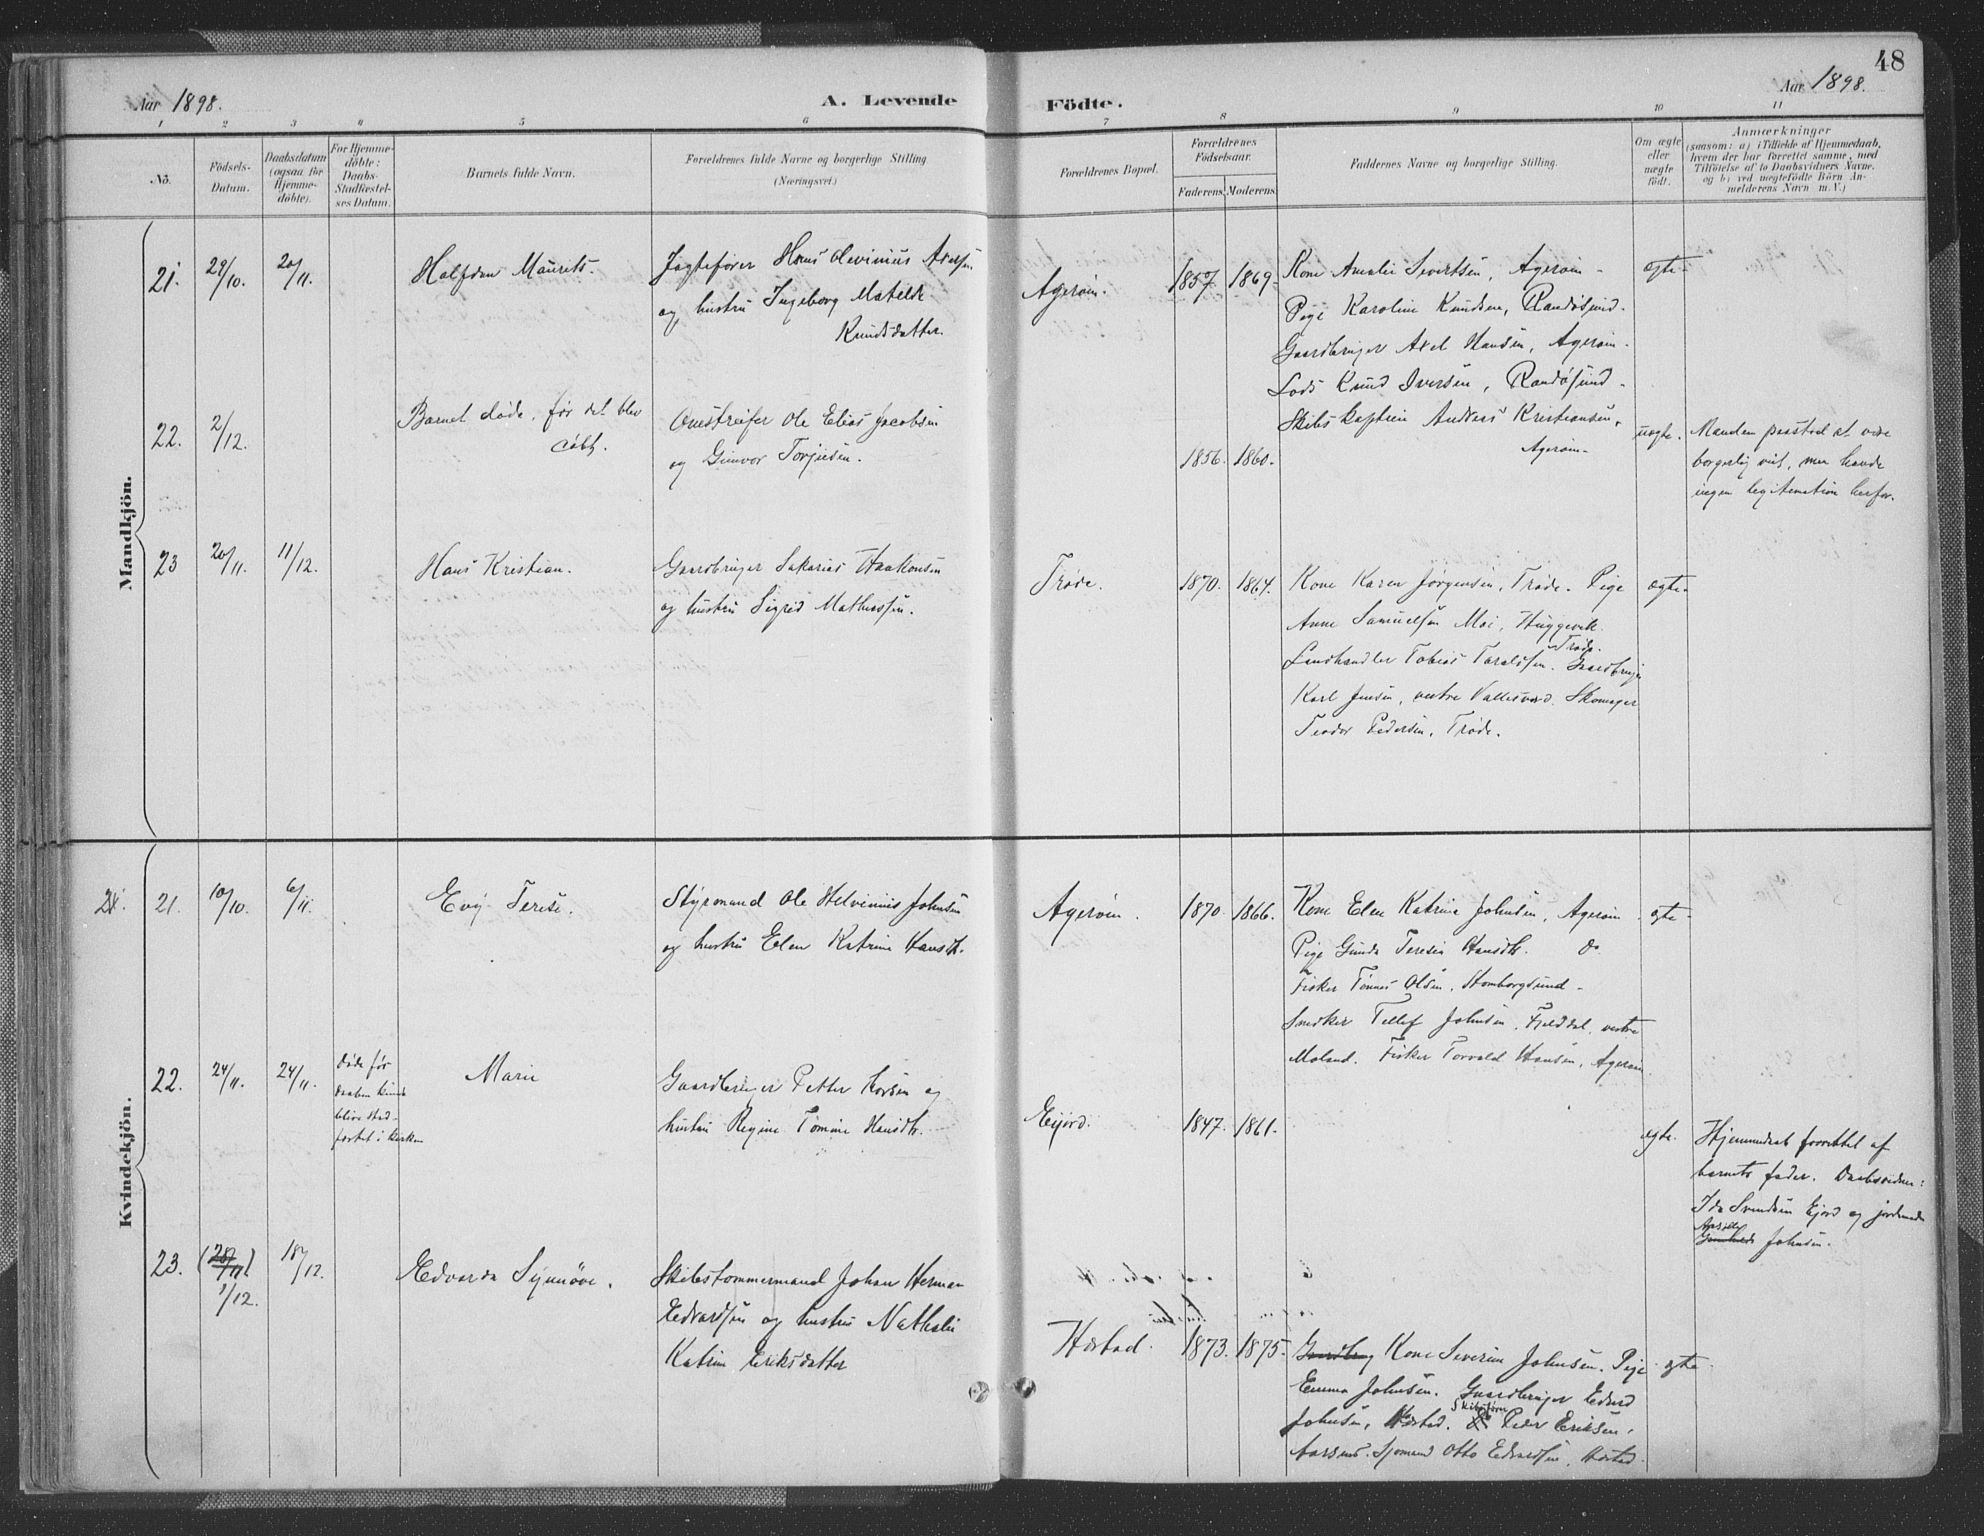 48
Aar 1898.
A. Levende Födte.
Aar 1898.
1 2 3 4 5 6 7 8 9 10 11
No.
Födsels-
Datum.
Daabsdatum
(ogsaa for
Hjemme-
döbte).
For Hjemme-
döbte:
Daabs-
Stadfæstel-
ses Datum.
Barnets fulde Navn.
Forældrenes fulde Navne og borgerlige Stilling
(Næringsvei.)
Forældrenes Bopæl.
Forældrenes
Födselsaar.
Faderens. Moderens.
Faddernes Navne og borgerlige Stilling.
Om ægte
eller
uægte
födt.
Anmærkninger
(saasom: a) i Tilfælde af Hjemmedaab,
hvem der har forrettet samme, med
Tilföielse af to Daabsvidners Navne.
og b) ved uægtefödte Börn An-
melderens Navn m. V.)
Mandkjön.
21. 29/10. 20/11. Halfdan Maurits.
Jagtefører Hans Olevinius
og hustru Ingeborg Matilde
Knudsdatter.
Agerøen. 1857. 1869.
Kone Amalie Severtsen, Agerøen -
Pige Karoline Knudsen, Randøsund.
Gaardbruger Axel Hansen, Agerøen.
Lods Knud Iversen, Randøsund.
Skibskaptein Andreas Kristiansen,
Agerøen.
ægte.
22. 2/12. Barnet døde, før det blev
døbt.
Ole Elias Jacobsen
og Gunvor Torjusen.
1856. 1860.
uægte.
Manden paastod at være
borgerlig viet, men havde
ingen legitimation herfor.
23 20/11. 11/12. Hans Kristian.
Gaardbruger Sakarias Haakonsen
og hustru Sigrid Mathiassen.
Trøde. 1870. 1864.
Kone Karen Jørgensen, Trøde. Pige
Anne Samuelsen Moi, Huggevik.
Landhandler Tobias Taraldsen. Trøde. Gaardbruger
Karl Jensen, vestre Vallesverd. Skomager
Teodor Pedersen, Trøde.
ægte.
Kvindekjön.
21. 10/10. 6/11. Evy Terese.
Styrmand Ole Helvinius Johnsen
og hustru Elen Katrine Hansdtr.
Agerøen. 1870. 1866.
Kone Elen Katrine Johnsen, Agerøen
Pige Gunda Teresia Hansdtr. do
Fisker Tønnes Olsen, Homborgsund -
Snedker Tellef Johnsen, Fjelddal, vestre
Moland. Fisker Torvald Hansen, Agerøen.
ægte.
22. 24/11. 24/11. døde før
daaben kunde
blive stad-
fæstet i kirken
Marie
Gaardbruger Petter
og
hustru Regine Tomine Hansdtr.
Eijord. 1847. 1861.
ægte.
Hjemmedaab forrettet af
barnets fader. Daabsvidner:
Ida Svendsen Ejord og jordemoder
Johnsen.
23. (28/11) 1/12. 18/12. Edvarda Synnøve.
Skibstømmermand Johan Herman
Edvardsen og hustru Nathalie
Katrine Eriksdatter
Hæstad. 1873. 1875.
Kone Severine Johnsen. Pige
Emma Johnsen. Gaardbruger Edvard
Johnsen, Hæstad. Skibsfører Peder Eriksen,
Aarsnes. Sjømand Otto Edvardsen, Hæstad.
ægte.